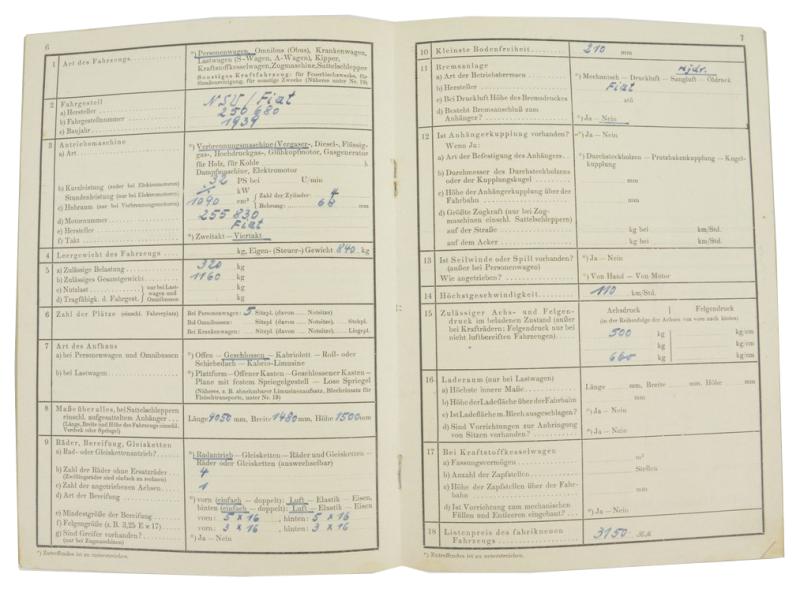 6
1 Art des Fahrzeugs
*) Personenwagen, Omnibus (Obus), Krankenwagen,
Lastwagen (S-Wagen, A-Wagen), Kipper,
Kraftstoffkesselwagen, Zugmaschine, Sattelschlepper
Sonstiges Kraftfahrzeug: für Feuerlöschzwecke, für
Straßenreinigung, für sonstige Zwecke (Näheres unter Nr. 19)
2 Fahrgestell
a) Hersteller NSU/Fiat
b) Fahrgestellnummer 250 680
c) Baujahr 1939
3 Antriebsmaschine
a) Art
*) Verbrennungsmaschine (Vergaser-, Diesel-, Flüssig-
gas-, Hochdruckgas-, Glühkopfmotor, Gasgenerator
für Holz, für Kohle
Dampfmaschine, Elektromotor
b) Kurzleistung (oder bei Elektromotoren) 32 PS bei U/min
Stundenleistung (nur bei Elektromotoren) kW
c) Hubraum (nur bei Verbrennungsmotoren) 1090 cm³ Zahl der Zylinder: 4
Bohrung: 68 mm
d) Motornummer 255 830
e) Hersteller Fiat
f) Takt *) Zweitakt – Viertakt
4 Leergewicht des Fahrzeugs kg, Eigen- (Steuer-) Gewicht 840 kg
5 a) Zulässige Belastung 320 kg
b) Zulässiges Gesamtgewicht 1160 kg
c) Nutzlast nur bei Last- kg
wagen und
d) Tragfähigk. d. Fahrgest. Omnibussen kg
6 Zahl der Plätze (einschl. Fahrerplatz) Bei Personenwagen: 5 Sitzpl. (davon Notsitze)
Bei Omnibussen: Sitzpl. (davon Notsitze), Stehpl.
Bei Krankenwagen: Sitzpl. (davon Notsitze), Liegepl.
7 Art des Aufbaus
a) bei Personenwagen und Omnibussen *) Offen – Geschlossen – Kabriolett – Roll- oder
Schiebedach – Kabrio-Limusine
b) bei Lastwagen *) Plattform – Offener Kasten – Geschlossener Kasten –
Plane mit festem Spriegelgestell – Lose Spriegel
(Näheres, z. B. abnehmbarer Limusinenaufsatz, Blechbrücke für
Fleischtransporte, unter Nr. 19)
8 Maße über alles, bei Sattelschleppern
einschl. aufgesatteltem Anhänger
(Länge, Breite und Höhe des Fahrzeugs einschl.
Verdeck oder Spriegel)
Länge 4050 mm, Breite 1480 mm, Höhe 1500 mm
9 Räder, Bereifung, Gleisketten
a) Rad- oder Gleiskettenantrieb? *) Radantrieb – Gleisketten – Räder und Gleisketten –
Räder oder Gleisketten (auswechselbar)
b) Zahl der Räder ohne Ersatzräder 4
(Zwillingsräder sind einfach zu rechnen)
c) Zahl der angetriebenen Achsen 1
d) Art der Bereifung *) vorn (einfach – doppelt): Luft – Elastik – Eisen,
hinten (einfach – doppelt): Luft – Elastik – Eisen
e) Mindestgröße der Bereifung vorn: 5 x 16, hinten: 5 x 16
f) Felgengröße (z. B. 3,25 E x 17) vorn: 3 x 16, hinten: 3 x 16
g) Sind Greifer vorhanden? *) Ja – Nein
(nur bei Zugmaschinen)
*) Zutreffendes ist zu unterstreichen.
7
10 Kleinste Bodenfreiheit 210 mm
11 Bremsanlage hydr.
a) Art der Betriebsbremsen *) Mechanisch – Druckluft – Saugluft – Öldruck
b) Hersteller Fiat
c) Bei Druckluft Höhe des Bremsdruckes atü
d) Besteht Bremsanschluß zum
Anhänger? *) Ja – Nein
12 Ist Anhängerkupplung vorhanden? *) Ja – Nein
Wenn Ja:
a) Art der Befestigung des Anhängers *) Durchsteckbolzen – Protzhakenkupplung – Kugel-
kupplung
b) Durchmesser des Durchsteckbolzens
oder der Kupplungskugel mm
c) Höhe der Anhängerkupplung über der
Fahrbahn mm
d) Größte Zugkraft (nur bei Zug-
maschinen einschl. Sattelschleppern)
auf der Straße kg bei km/Std.
auf dem Acker kg bei km/Std.
13 Ist Seilwinde oder Spill vorhanden? *) Ja – Nein
(außer bei Personenwagen)
Wie angetrieben? *) Von Hand – Von Motor
14 Höchstgeschwindigkeit 110 km/Std.
15 Zulässiger Achs- und Felgen-
druck im beladenen Zustand (außer
bei Krafträdern; Felgendruck nur bei
nicht luftbereiften Fahrzeugen)
Achsdruck Felgendruck
(in der Reihenfolge der Achsen von vorn nach hinten)
500 kg kg/cm
kg kg/cm
660 kg kg/cm
16 Laderaum (nur bei Lastwagen)
a) Höchste innere Maße Länge mm, Breite mm, Höhe mm
b) Höhe der Ladefläche über der Fahrbahn mm
c) Ist Ladefläche m. Blech ausgeschlagen? *) Ja – Nein
d) Sind Vorrichtungen zur Anbringung
von Sitzen vorhanden? *) Ja – Nein
17 Bei Kraftstoffkesselwagen
a) Fassungsvermögen m³
b) Anzahl der Zapfstellen Stellen
c) Höhe der Zapfstellen über der Fahr-
bahn mm
d) Ist Vorrichtung zum mechanischen
Füllen und Entleeren eingebaut? *) Ja – Nein
18 Listenpreis des fabrikneuen
Fahrzeugs 3150 RM
*) Zutreffendes ist zu unterstreichen.